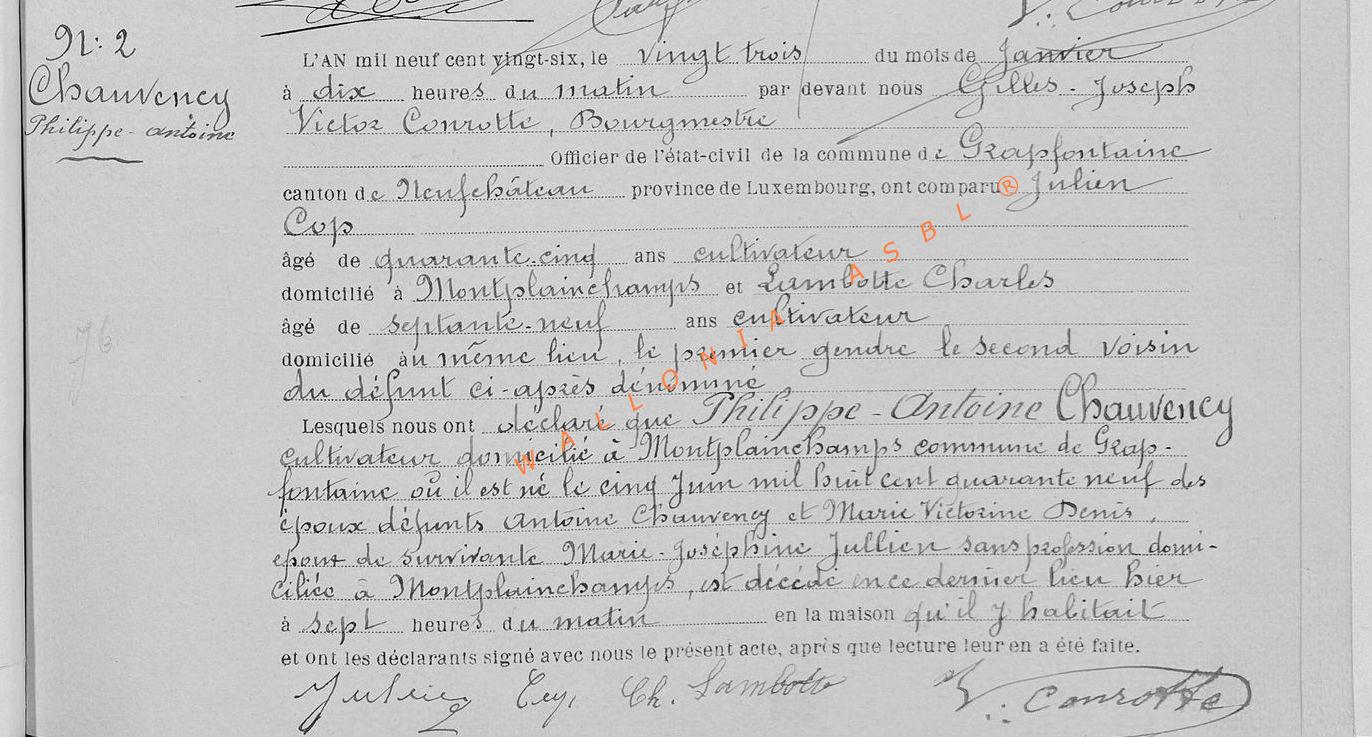 N: 2
Chauvency
Philippe - Antoine
L'AN mil neuf cent vingt-six, le vingt trois du mois de Janvier
à dix heures du matin par devant nous Gilles - Joseph
Victor Conrotte, Bourgmestre
Officier de l'état-civil de la commune de Grapfontaine
canton de Neufchâteau province de Luxembourg, ont comparu Julien
Cop
âgé de quarante-cinq ans cultivateur
domicilié à Montplainchamps et Lambotte Charles
âgé de septante-neuf ans cultivateur
domicilié au même lieu, le premier gendre le second voisin
du défunt ci-après dénommé
Lesquels nous ont déclaré que Philippe - Antoine Chauvency
cultivateur domicilié à Montplainchamps commune de Grap-
fontaine où il est né le cinq Juin mil huit cent quarante neuf des
époux défunts Antoine Chauvency et Marie Victorine Denis,
epoux de survivante Marie-Joséphine Jullien sans profession domi-
ciliée à Montplainchamps, est décédé en ce dernier lieu hier
à sept heures du matin en la maison qu'il y habitait
et ont les déclarants signé avec nous le présent acte, après que lecture leur en a été faite.
Julien Ch. Lambotte V. Conrotte
76
WALLONIA ASBL ®